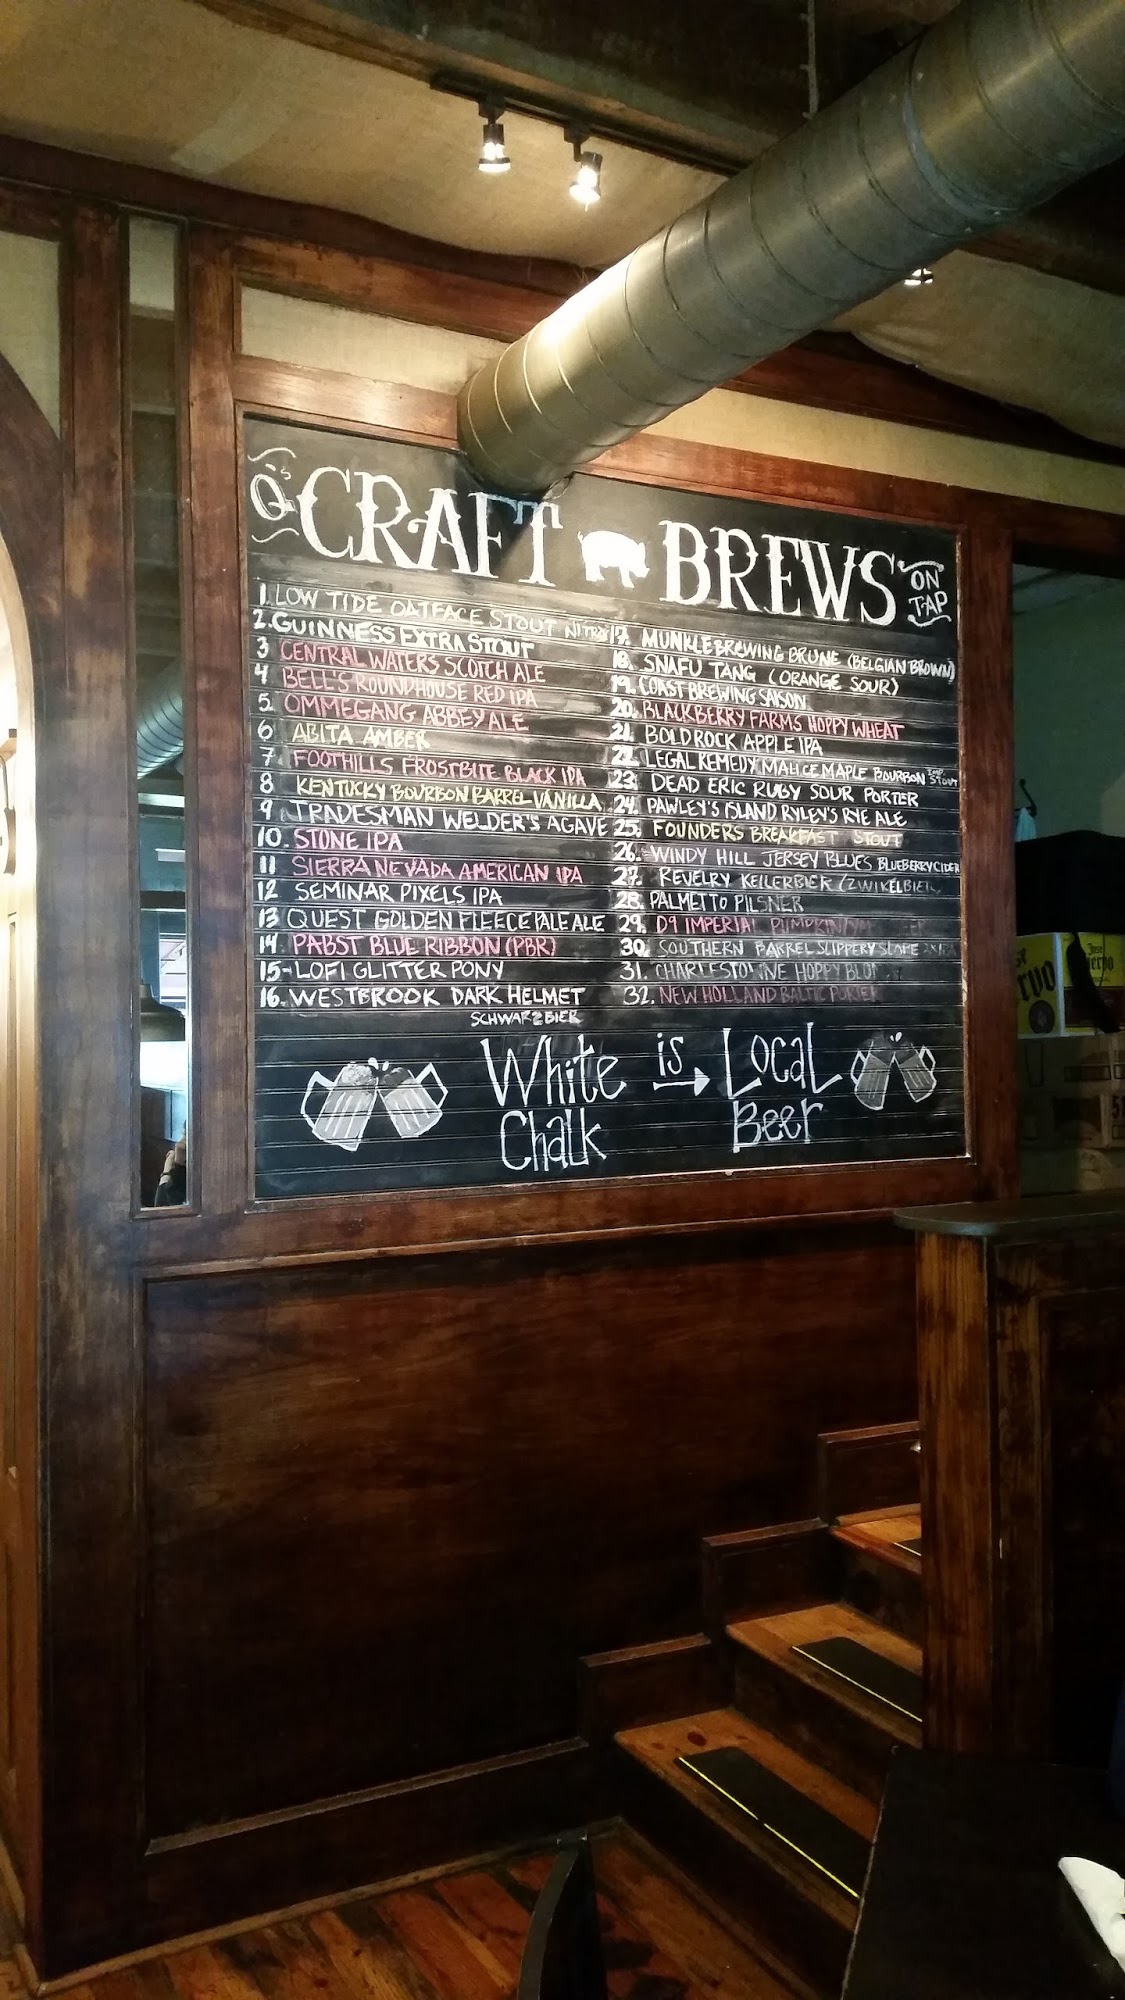 Q's CRAFT BREWS ON TAP
1. LOW TIDE OATFACE STOUT NITRO
2. GUINNESS EXTRA STOUT
3 CENTRAL WATERS SCOTCH ALE
4 BELL'S ROUNDHOUSE RED IPA
5 OMMEGANG ABBEY ALE
6 ABITA AMBER
7 FOOTHILLS FROSTBITE BLACK IPA
8 KENTUCKY BOURBON BARREL VANILLA
9 TRADESMAN WELDER'S AGAVE
10. STONE IPA
11 SIERRA NEVADA AMERICAN IPA
12 SEMINAR PIXELS IPA
13 QUEST GOLDEN FLEECE PALE ALE
14 PABST BLUE RIBBON (PBR)
15- LOFI GLITTER PONY
16. WESTBROOK DARK HELMET
SCHWARZBIER
17. MUNKLE BREWING BRUNE (BELGIAN BROWN)
18. SNAFU TANG (ORANGE SOUR)
19. COAST BREWING SAISON
20. BLACKBERRY FARMS HOPPY WHEAT
21. BOLD ROCK APPLE IPA
22. LEGAL REMEDY MALICE MAPLE BOURBON IMP. STOUT
23. DEAD ERIC RUBY SOUR PORTER
24. PAWLEY'S ISLAND RYLEY'S RYE ALE
25. FOUNDERS BREAKFAST STOUT
26. WINDY HILL JERSEY BLUES BLUEBERRY CIDER
27. REVELRY KELLERBIER (ZWIKELBIER)
28. PALMETTO PILSNER
29. D9 IMPERIAL PUMPKIN
30. SOUTHERN BARREL SLIPPERY SLOPE
31. HOPPY
32. NEW HOLLAND BALTIC PORTER
White Chalk is → Local Beer
Jose
Cuervo